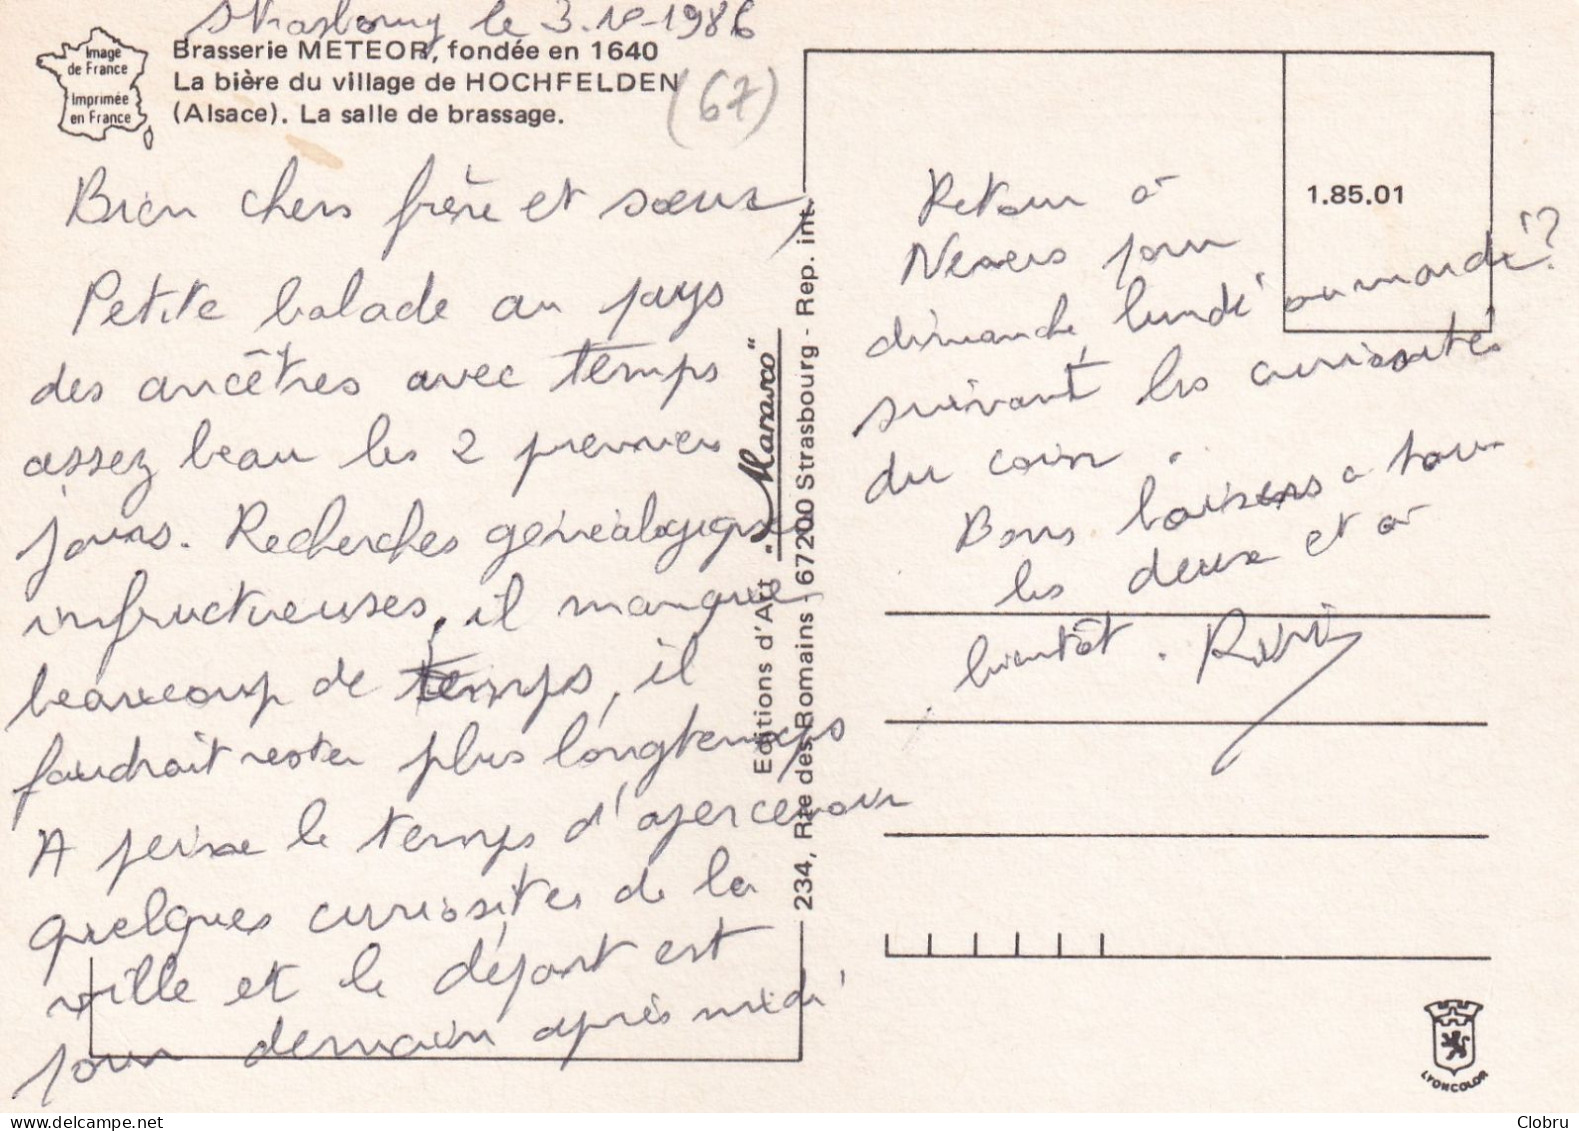 Strasbourg le 3.10-1986
Image
de France
Imprimée
en France
Brasserie METEOR, fondée en 1640
La bière du village de HOCHFELDEN
(Alsace). La salle de brassage.
(67)
Bien chers frère et sœur
Petite balade au pays
des ancêtres avec temps
assez beau les 2 premiers
jours. Recherches généalogiques
infructueuses, il manque
beaucoup de temps, il
faudrait rester plus longtemps
A peine le temps d'apercevoir
quelques curiosités de la
ville et le départ est
pour demain après midi
Editions d'Art "Marasco"
234, Rte des Romains - 67200 Strasbourg - Rep. int.
1.85.01
Retour à
Nevers pour
dimanche, lundi ou mardi?
suivant les curiosités
du coin.
Bons baisers a tous
les deux et à
bientôt.
LYONCOLOR
Clobru